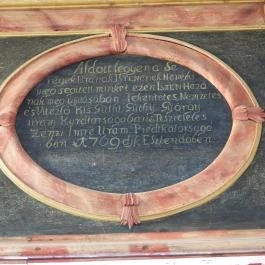 Áldott legyen a Se
regek Urának Istenének Neve ki
meg segitett minket ezen Isten Házá
nak meg ujjitásában Tekéntetes, Nemzetes
és Vitézlö Kis Gúthi Gúthy György
Uram Kurátorságában és Tiszteletes
Zenzi Imre Uram Prédikátorsága
ban 1769dik Esztendöben.